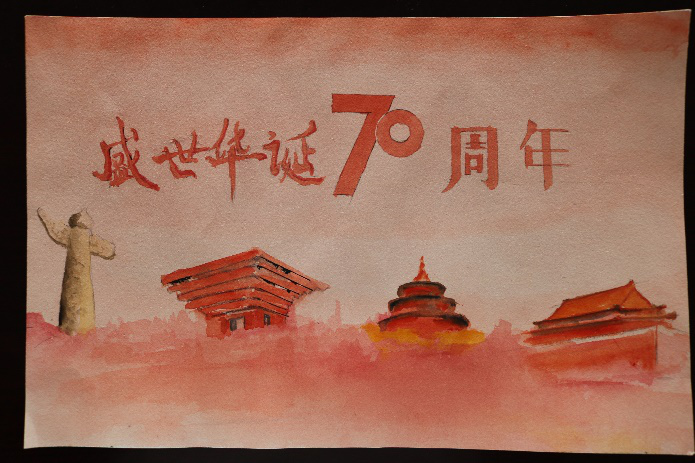 盛世华诞70周年